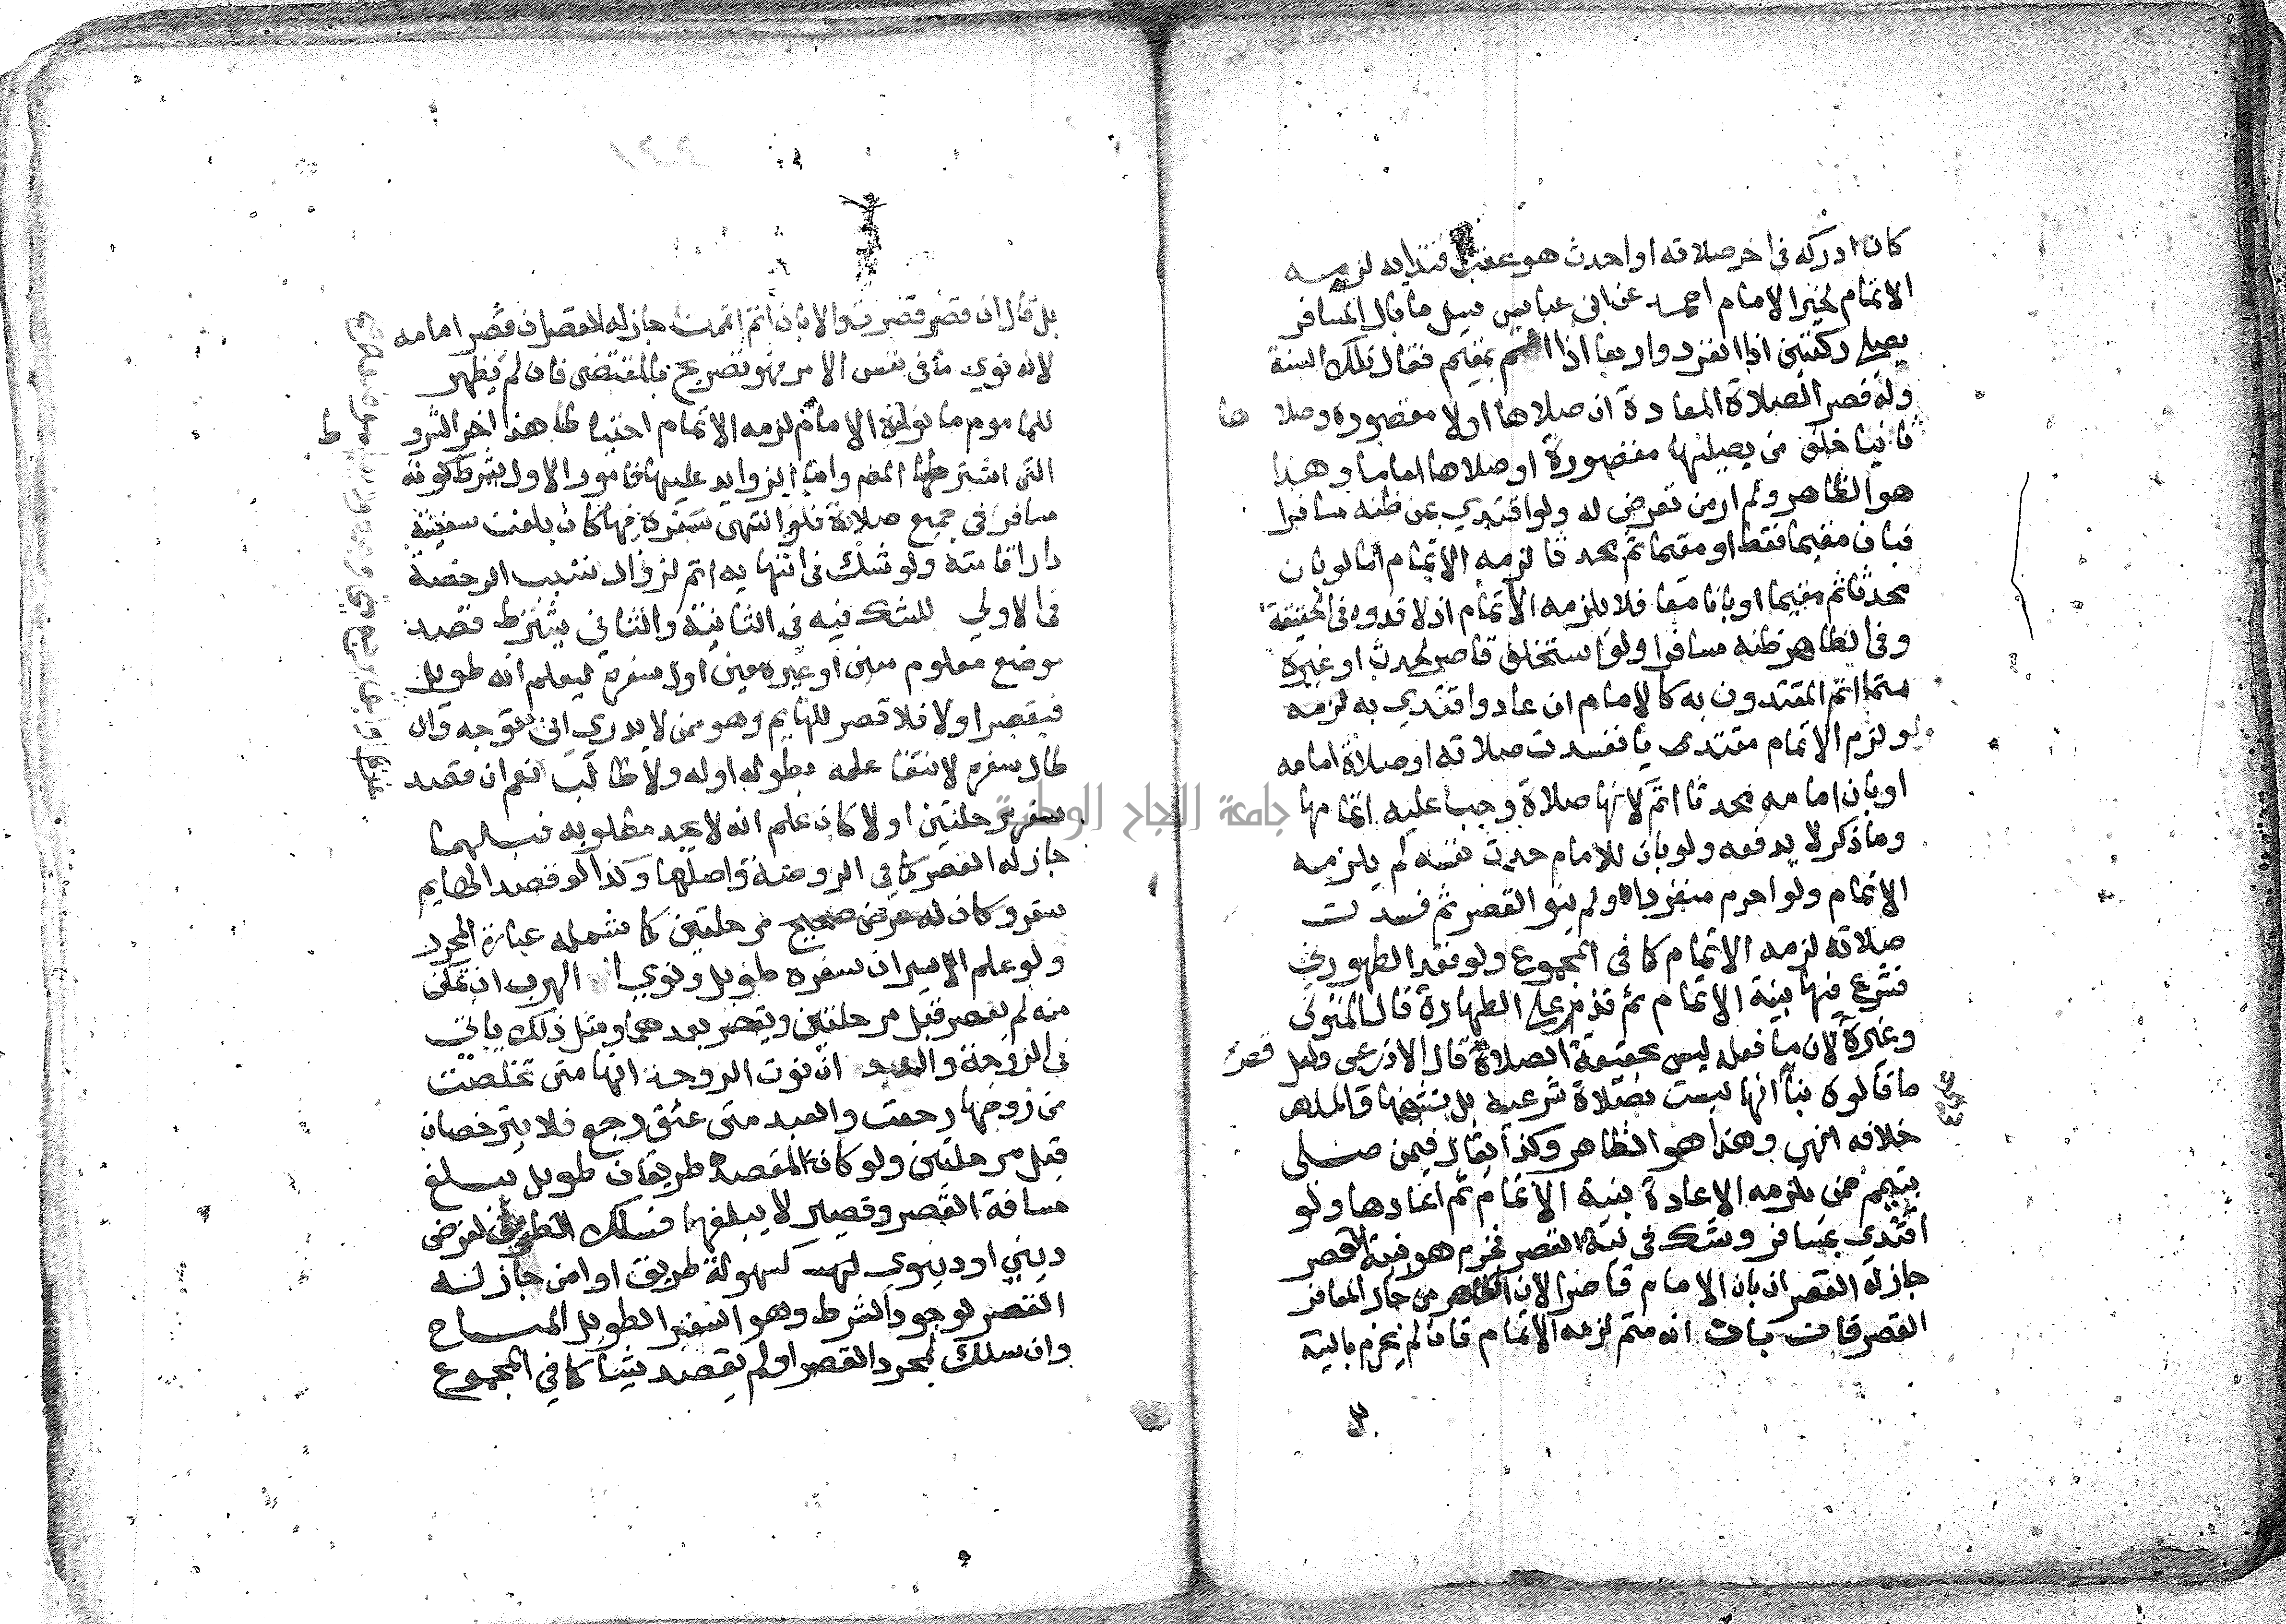 كان ادركه في اخر صلاته او احدث هو عقب اقتدايه لزمه
الاتمام لخبر الامام احمد عن ابن عباس سيل ما بال المسافر
يصلي ركعتين اذا انفرد واربعا اذا ائتم بمقيم فقال تلك السنة
وله قصر الصلاة المعادة ان صلاها اولا مقصورة وصلا ها
ثانيا خلف من يصليها مقصورة او صلاها اماما وهذا
هو الظاهر ولم ار من تعرض له ولو اقتدي بمن ظنه مسافرا
فبان مقيما فقط او مقيما ثم محدثا لزمه الاتمام اما لو بان
محدثا ثم مقيما او بانا معا فلا يلزمه الاتمام اذ لا قدوه في الحقيقة
وفي الظاهر ظنه مسافرا ولو استخلف قاصر لحدث او غيره
متما اتم المقتدون به كالامام ان عاد واقتدي به لزمه
ولو لزم الاتمام مقتدى يا ففسدت صلاته او صلاة امامه
او بان امامه محدثا اتم لانها صلاة وجب عليه اتمامها
وما ذكر لا يدفعه ولو بان للامام حدث نفسه لم يلزمه
الاتمام ولو احرم منفردا ولم ينو القصر ثم فسدت
صلاته لزمه الاتمام كما في المجموع ولو فقد الطهورين
فشرع فيها بنية الاتمام ثم قدر على الطهارة قال المتولى
وغيره قصر لان ما فعله ليس بحقيقة الصلاة قال الاذرعى ولعل
ما قالوه بنا انها ليست بصلاة شرعية بل تشبهها والمذهب
خلافه انتهي وهذا هو الظاهر وكذا يقال فيمن صلى
بتيمم ممن يلزمه الاعادة بنية الاتمام ثم اعادها ولو
اقتدي بمسافر وشك في نية القصر فجزم هو بنية القصر
جاز له القصر ان بان الامام قاصرا لان الظاهر من حال المسافر
القصر فان بان انه متم لزمه الاتمام فان لم يجزم بالنية
بل
بل قال ان قصر قصرت والا بان اتم اتممت جاز له القصر ان قصر امامه
لانه نوي ما في نفس الامر فهو تصريح بالمقتضى فان لم يظهر
للماموم ما نواه الامام لزمه الاتمام احتياطا هذا اخر الشروط
التي اشترطها المص واما الزوايد عليها فامور الاول يشترط كونه
مسافرا في جميع صلاته فلو انتهى سفره فيها كان بلغت سفينته
دار اقامته ولو شك في انتهايه اتم لزوال سبب الرخصة
في الاولي للشك فيه في الثانية والثاني يشترط قصد
موضع معلوم معين او غيره معين اول سفره ليعلم انه طويل
فيقصر اولا فلا قصر للهايم وهو من لا يدري اين يتوجه وان
طال سفره لانتفا علمه بطوله اوله ولا طالب نعم ان قصد
سفر مرحلتين او لا كان علم انه لا يجد مطلوبه قبلهما
جاز له القصر كما في الروضة واصلها وكذا لو قصد الهايم
سفر وكان له غرض صحيح مرحلتين كما شمله عبارة المحرر
ولو علم الاسير ان سفره طويل ونوي الهرب ان تمكن
منه لم يقصر قبل مرحلتين ويقصر بعدهما ومثل ذلك ياتي
في الزوجة والعبد ان نوت الزوجة انها متى تخلصت
من زوجها رجعت والعبد متى عتق رجع فلا يترخصان
قبل مرحلتين ولو كان لمقصده طريقان طويل يبلغ
مسافة القصر وقصير لا يبلغها فسلك الطويل لغرض
ديني او دنيوي كسهولة طريق او امن جاز له
القصر لوجود الشرط وهو السفر الطويل المباح
وان سلك لمجرد القصر او لم يقصد شيئا كما في المجموع
جامعة النجاح الوطنية